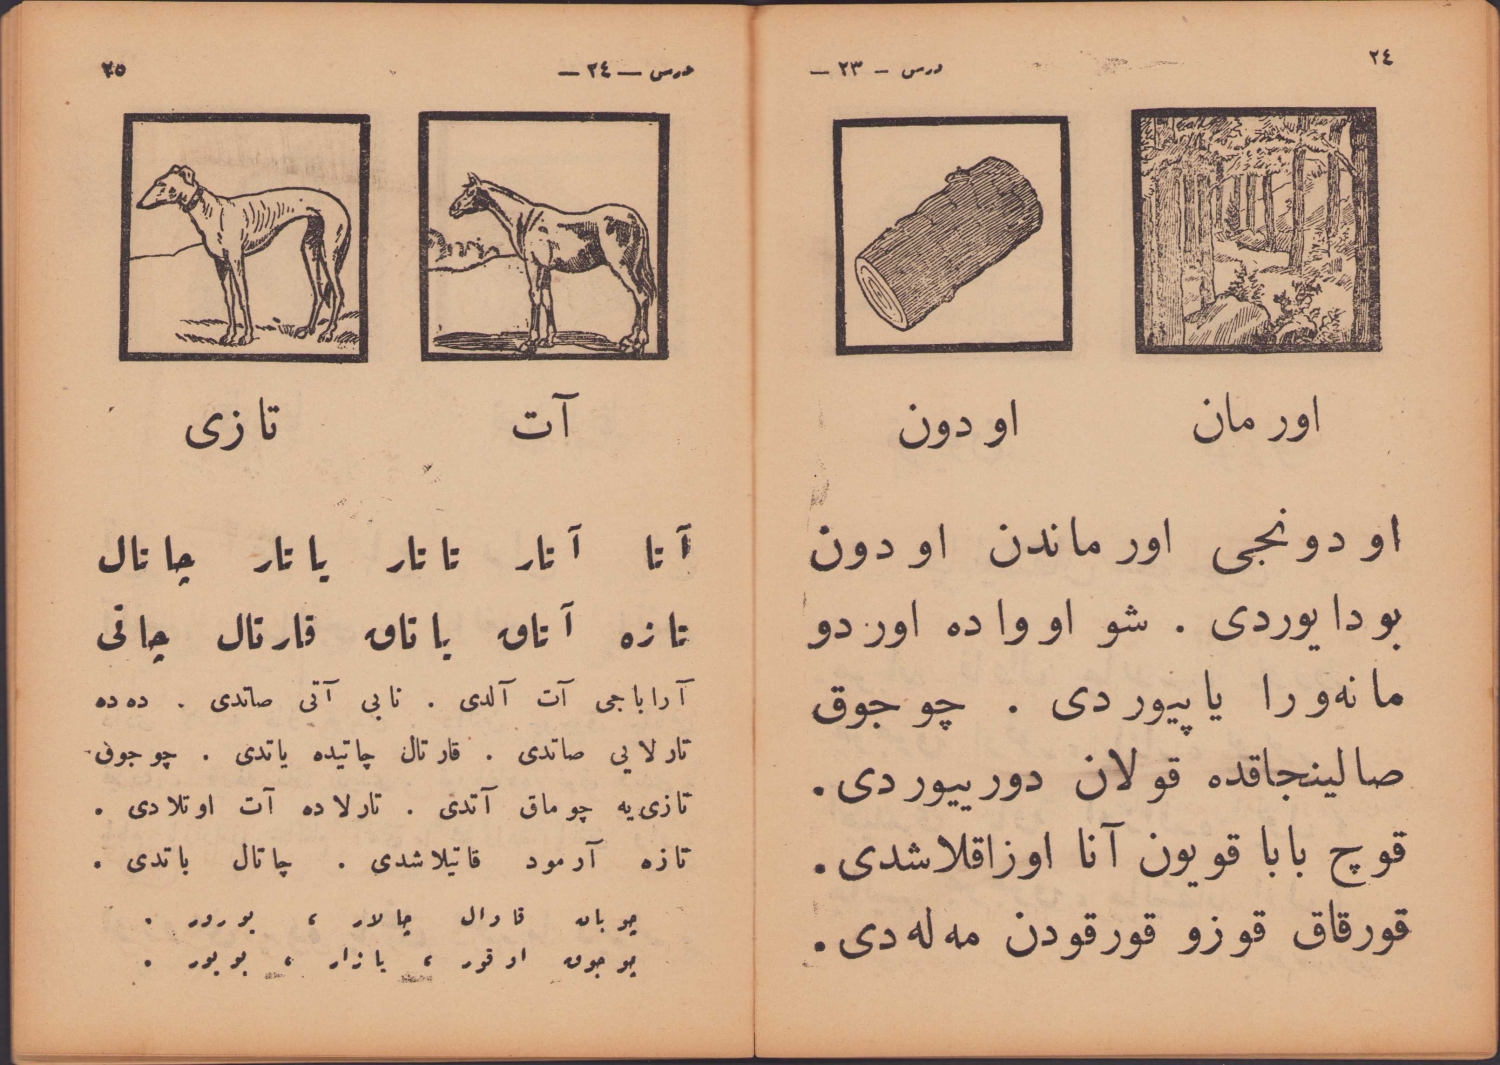 ٢٤
درس - ٢٣ -
اورمان
اودون
اودونجی اورماندن اودون
بودایوردی . شو اوواده اوردو
مانه‌ورا یاپیوردی . چوجوق
صالینجاقده قولان دورییوردی .
قوچ بابا قویون آنا اوزاقلاشدی .
قورقاق قوزو قورقودن مه‌له‌دی .
درس - ٢٤ -
٢٥
آت
تازی
آتا آتار تاتار یاتار چاتال
تازه آتاق یاتاق قارتال چاتی
آراباجی آت آلدی . نابی آتی صاتدی . دده
تارلایی صاتدی . قارتال چاتیده یاتدی . چوجوق
تازی‌یه چوماق آتدی . تارلاده آت اوتلادی .
تازه آرمود قاتیلاشدی . چاتال باتدی .
چوبان قاوال چالار ،
چوجوق اوقور ، یازار ،